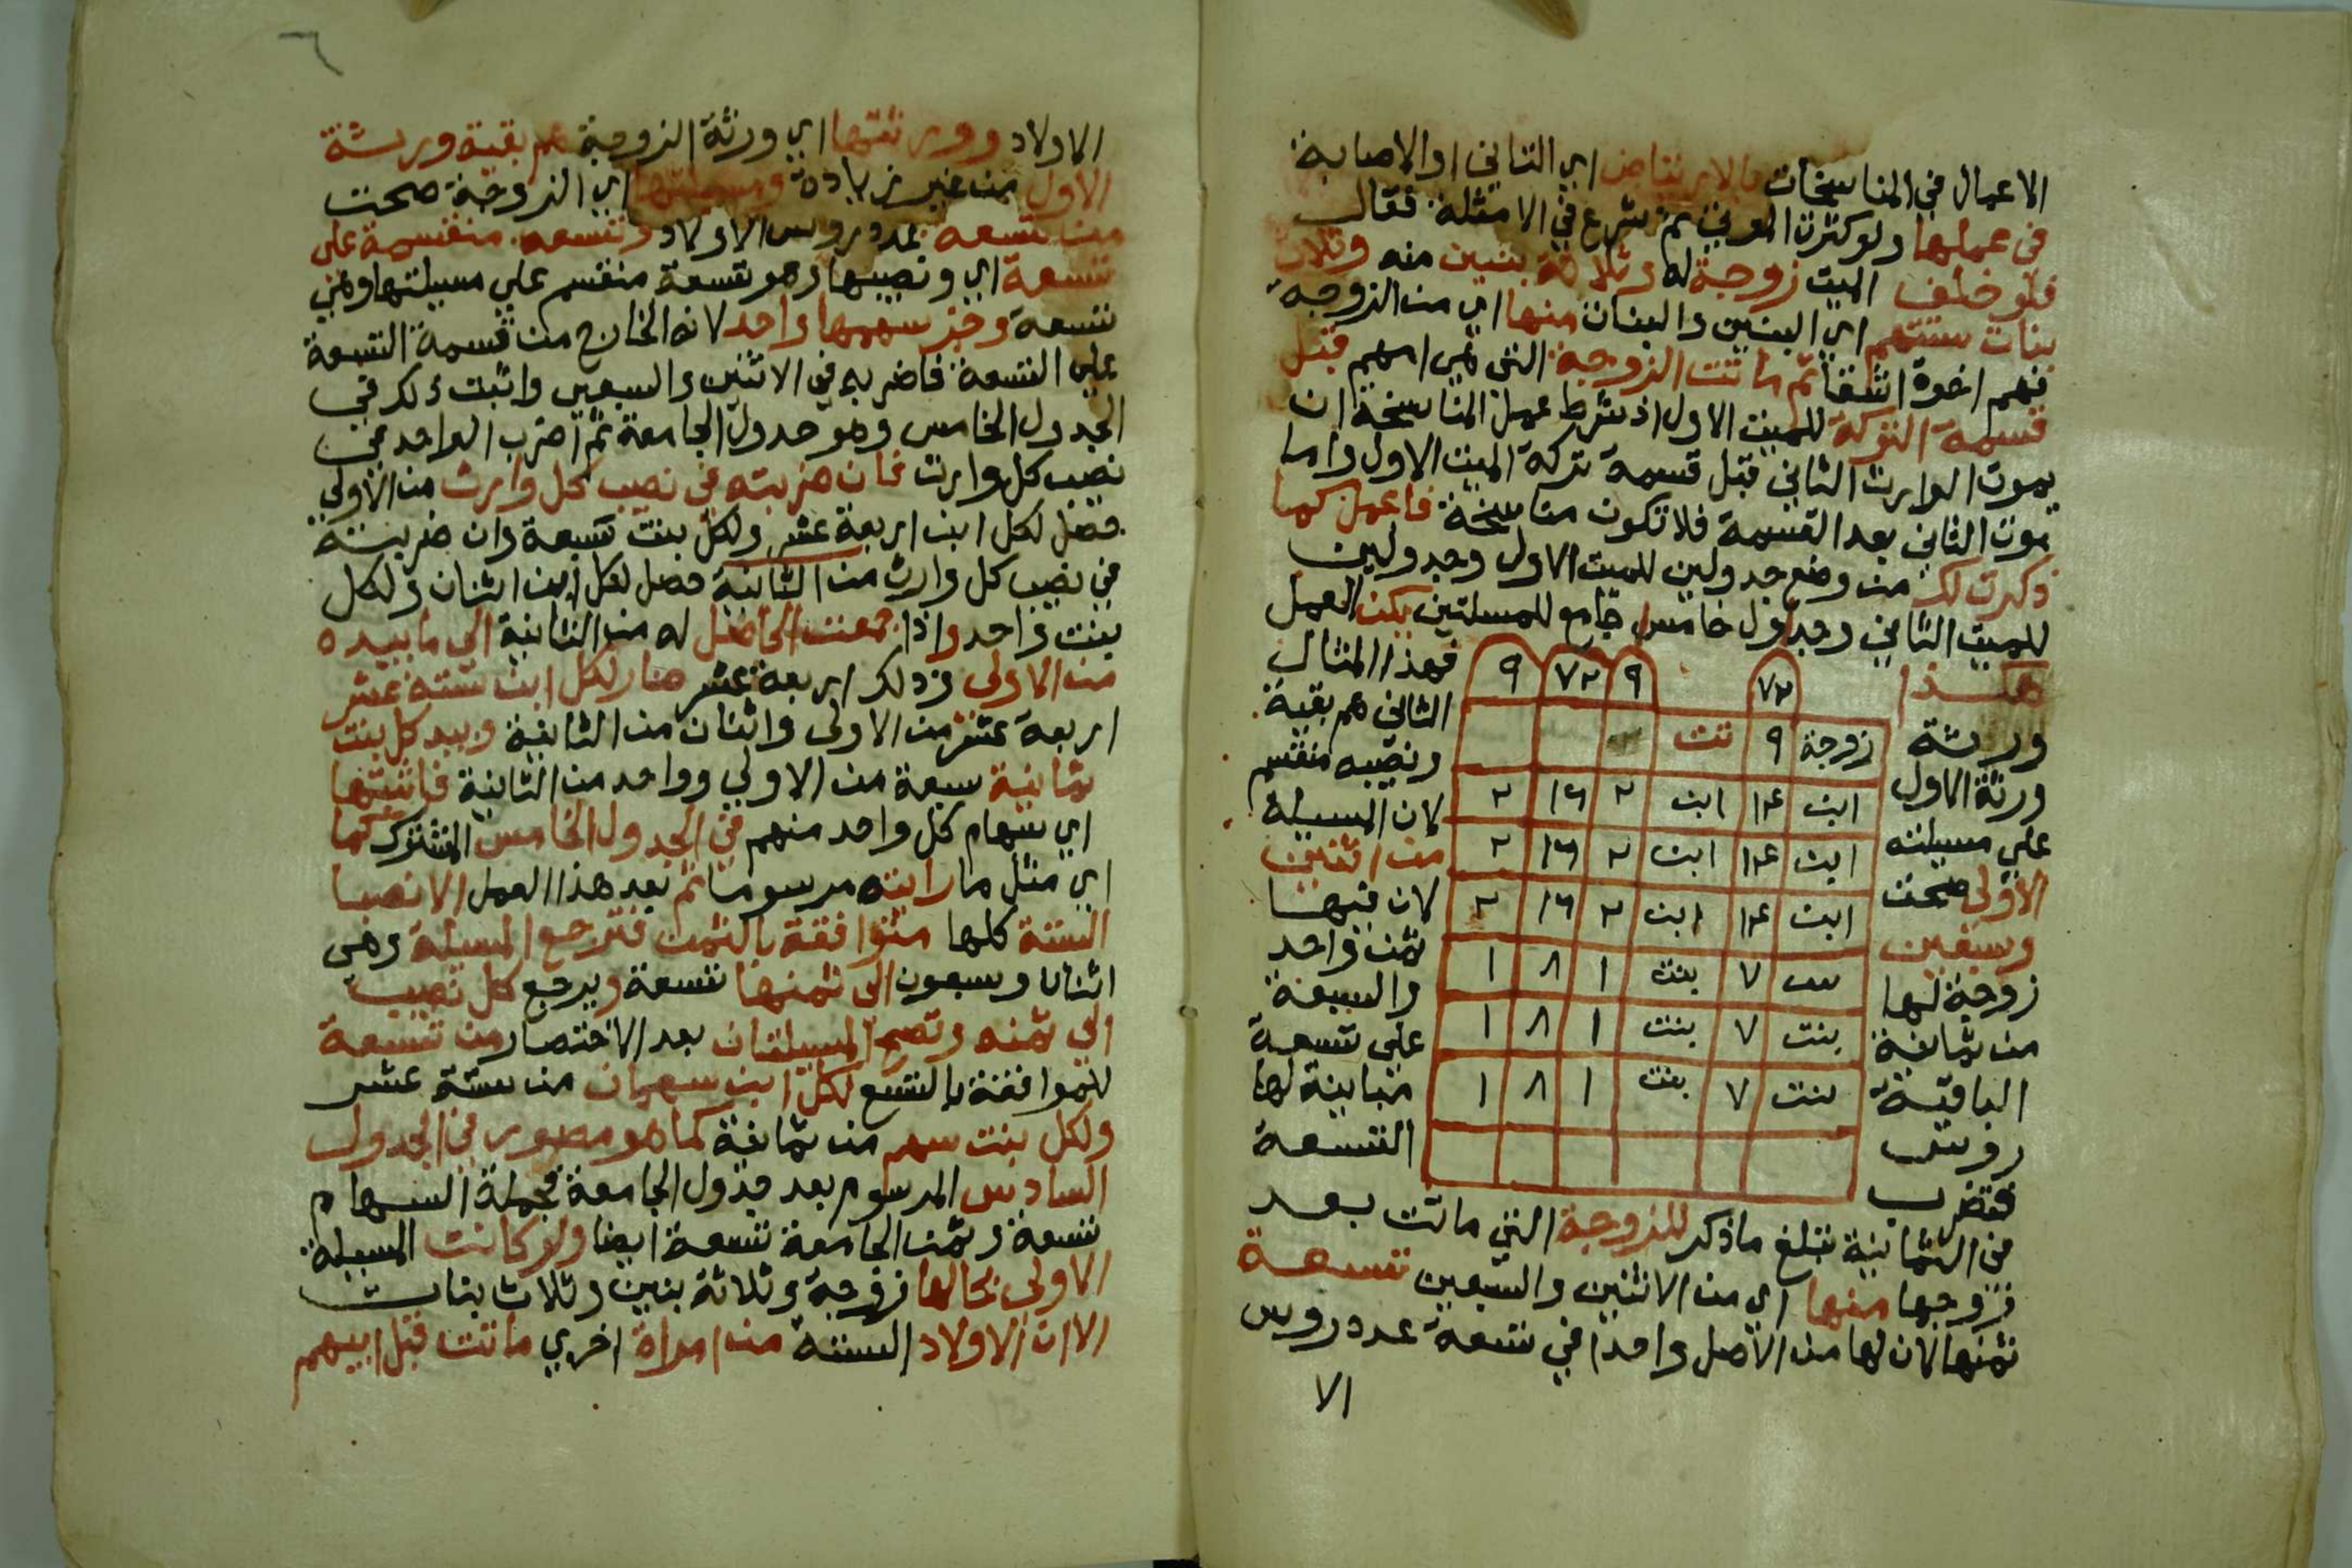 الاعمال في المناسخات بالارتياض اي التاني او الاصابة
في عملها ولو كثرت الموتي ثم شرع في الامثلة فقال
فلو خلف الميت زوجة له وثلاثة بنين منه وثلاث
بنات ستتهم اي البنين والبنات منها اي من الزوجة
فهم اخوة اشقا ثم ماتت الزوجة التي هي امهم قبل
قسمة التركة للميت الاول اذ شرط عمل المناسخة ان
يموت الوارث الثاني قبل قسمة تركة الميت الاول واما
موت الثاني بعد القسمة فلا تكون مناسخة فاعمل كما
ذكرت لك من وضع جدولين للميت الاول وجدولين
للميت الثاني وجدول خامس جامع للمسلتين يكن العمل
هكذا فهذا المثال
ورثة الثاني هم بقية
ورثة الاول ونصيبه منقسم
علي مسيلته لان المسيلة
الاولى صحت من اثنين
وسبعين لان فيها
زوجة لها ثمن واحد
من ثمانية والسبعة
الباقية علي تسعة
روس مباينة لها
فتضرب التسعة
٧٢ ٩ ٧٢ ٩
زوجة ٩ تت
ابن ١٤ ابن ٢ ١٦ ٢
ابن ١٤ ابن ٢ ١٦ ٢
ابن ١٤ ابن ٢ ١٦ ٢
بنت ٧ بنت ١ ٨ ١
بنت ٧ بنت ١ ٨ ١
بنت ٧ بنت ١ ٨ ١
في الثمانية تبلغ ما ذكر للزوجة التي ماتت بعد
زوجها منها اي من الاثنين والسبعين تسعة
ثمنها لان لها من الاصل واحدا في تسعة عدد روس
الا
٦
الاولاد وورثتها اي ورثة الزوجة هم بقية ورثة
الاول من غير زيادة ومسيلتها اي الزوجة صحت
من تسعه بعدد روس الاولاد وتسعه منقسمة على
تسعة اي ونصيبها وهو تسعة منقسم علي مسيلتها وهي
تسعة وجز سهمها واحد لانه الخارج من قسمة التسعة
علي التسعة فاضربه في الاثنين والسبعين واثبت ذلك في
الجدول الخامس وهو جدول الجامعة ثم اضرب الواحد في
نصيب كل وارث فان ضربته في نصيب كل وارث من الاولي
حصل لكل ابن اربعة عشر ولكل بنت سبعة وان ضربته
في نصيب كل وارث من الثانية حصل لكل ابن اثنان ولكل
بنت واحد واذا جمعت الحاصل له من الثانية الي ما بيده
من الاولى وذلك اربعة عشر صار لكل ابن ستة عشر
اربعة عشر من الاولى واثنان من الثانية وبيد كل بنت
ثمانية سبعة من الاولي وواحد من الثانية فاثبتها
اي سهام كل واحد منهم في الجدول الخامس المشترك كما
اي مثل ما رايته مرسوما ثم بعد هذا العمل الانصبا
الستة كلها متوافقة بالثمن فترجع المسيلة وهي
اثنان وسبعون الى ثمنها تسعة ويرجع كل نصيب
الي ثمنه وتصح المسيلتان بعد الاختصار من تسعة
للموافقة بالتسع لكل ابن سهمان من ستة عشر
ولكل بنت سهم من ثمانية كما هو مصور في الجدول
السادس المرسوم بعد جدول الجامعة فجملة السهام
تسعة وثمن الجامعة تسعة ايضا ولو كانت المسيلة
الاولي بحالها زوجة وثلاثة بنين وثلاث بنات
الا ان الاولاد الستة من امراة اخري ماتت قبل ابيهم